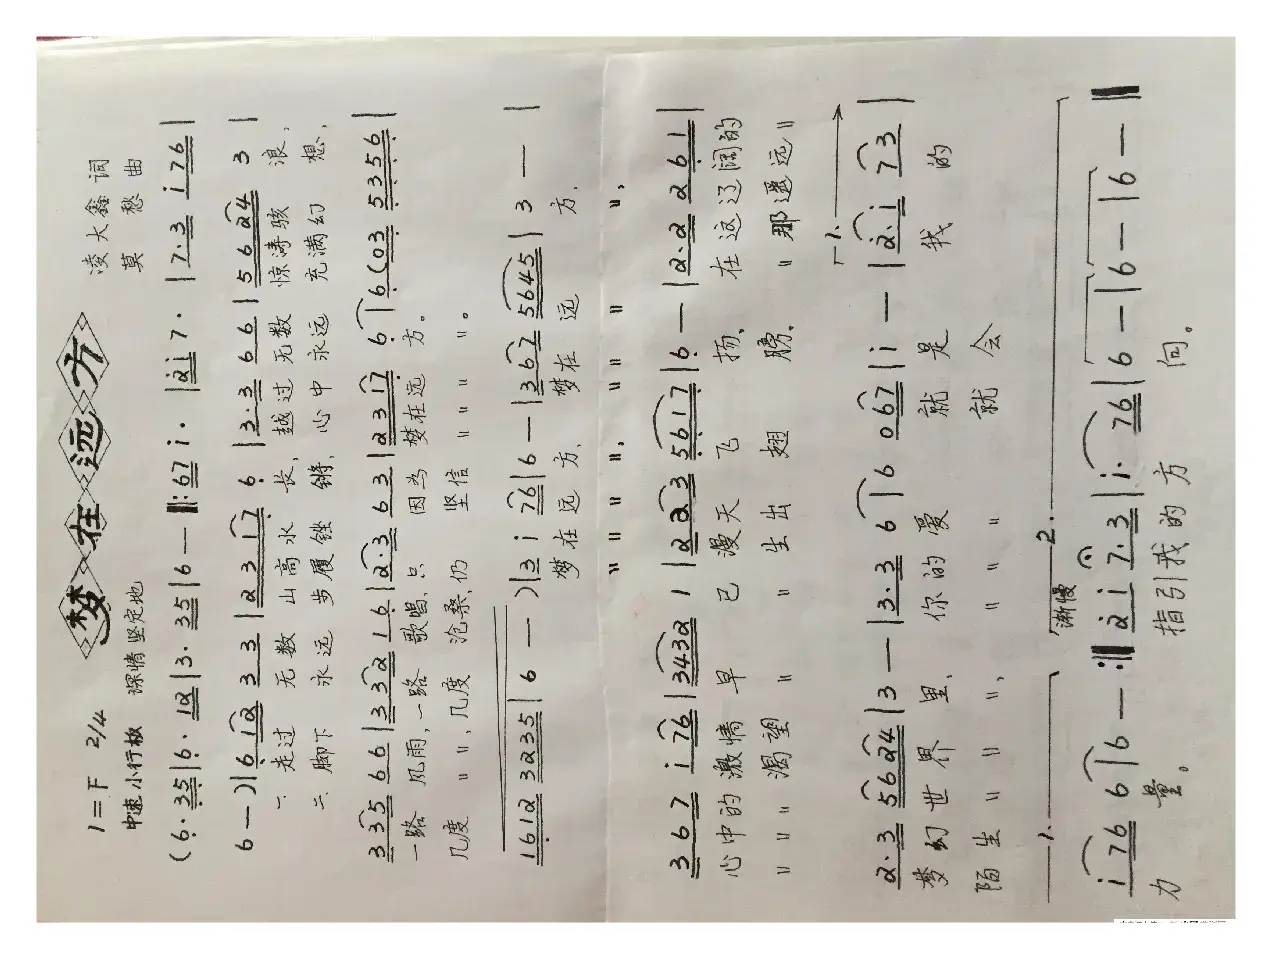 梦在远方
1=F 2/4
凌大鑫 词
中速 小行板 深情 坚定地
莫愁 曲
(6· 35|6· 12|3· 35|6 — ‖:67 i· |2i 7· |7·3 i 76|
6 — )|6 12 3 3|2 3 17 6|3·3 6 6|5 6 24 3|
一、走过 无数 山高水长, 越过 无数 惊涛骇浪,
二、脚下 永远 步履铿锵, 心中 永远 充满幻想,
335 6 6|332 1 6|2·3 6 3|2 3 17 6|6(03 5356|
一路 风雨,一路 歌唱,只 因为 梦在远方。
几度 〃〃,几度 沧桑,仍 坚信 〃〃〃〃。
1612 3235|6 — )|3 i 76|6 — |367 5645|3 — |
梦在远方, 梦在 远方,
〃〃〃〃, 〃〃 〃〃,
3 6 7 i 76|3432 1|2 2 3 5617|6 — |2·2 2 6 1|
心中的激情 早已 漫天 飞扬, 在这辽阔的
〃〃〃渴望 〃〃 生出 翅膀, 〃〃那遥远〃
2·3 5624|3 — |3·3 6|6 067|i — |2·i 73|
梦幻世界里, 你的爱 就是 我的
陌生〃〃〃, 〃〃〃 就会
1. 2. 渐慢
i 76 6|6 — :‖2 i 7·3|i· 76|6 — |6 — |6 — ‖
力量。 指引我的方向。